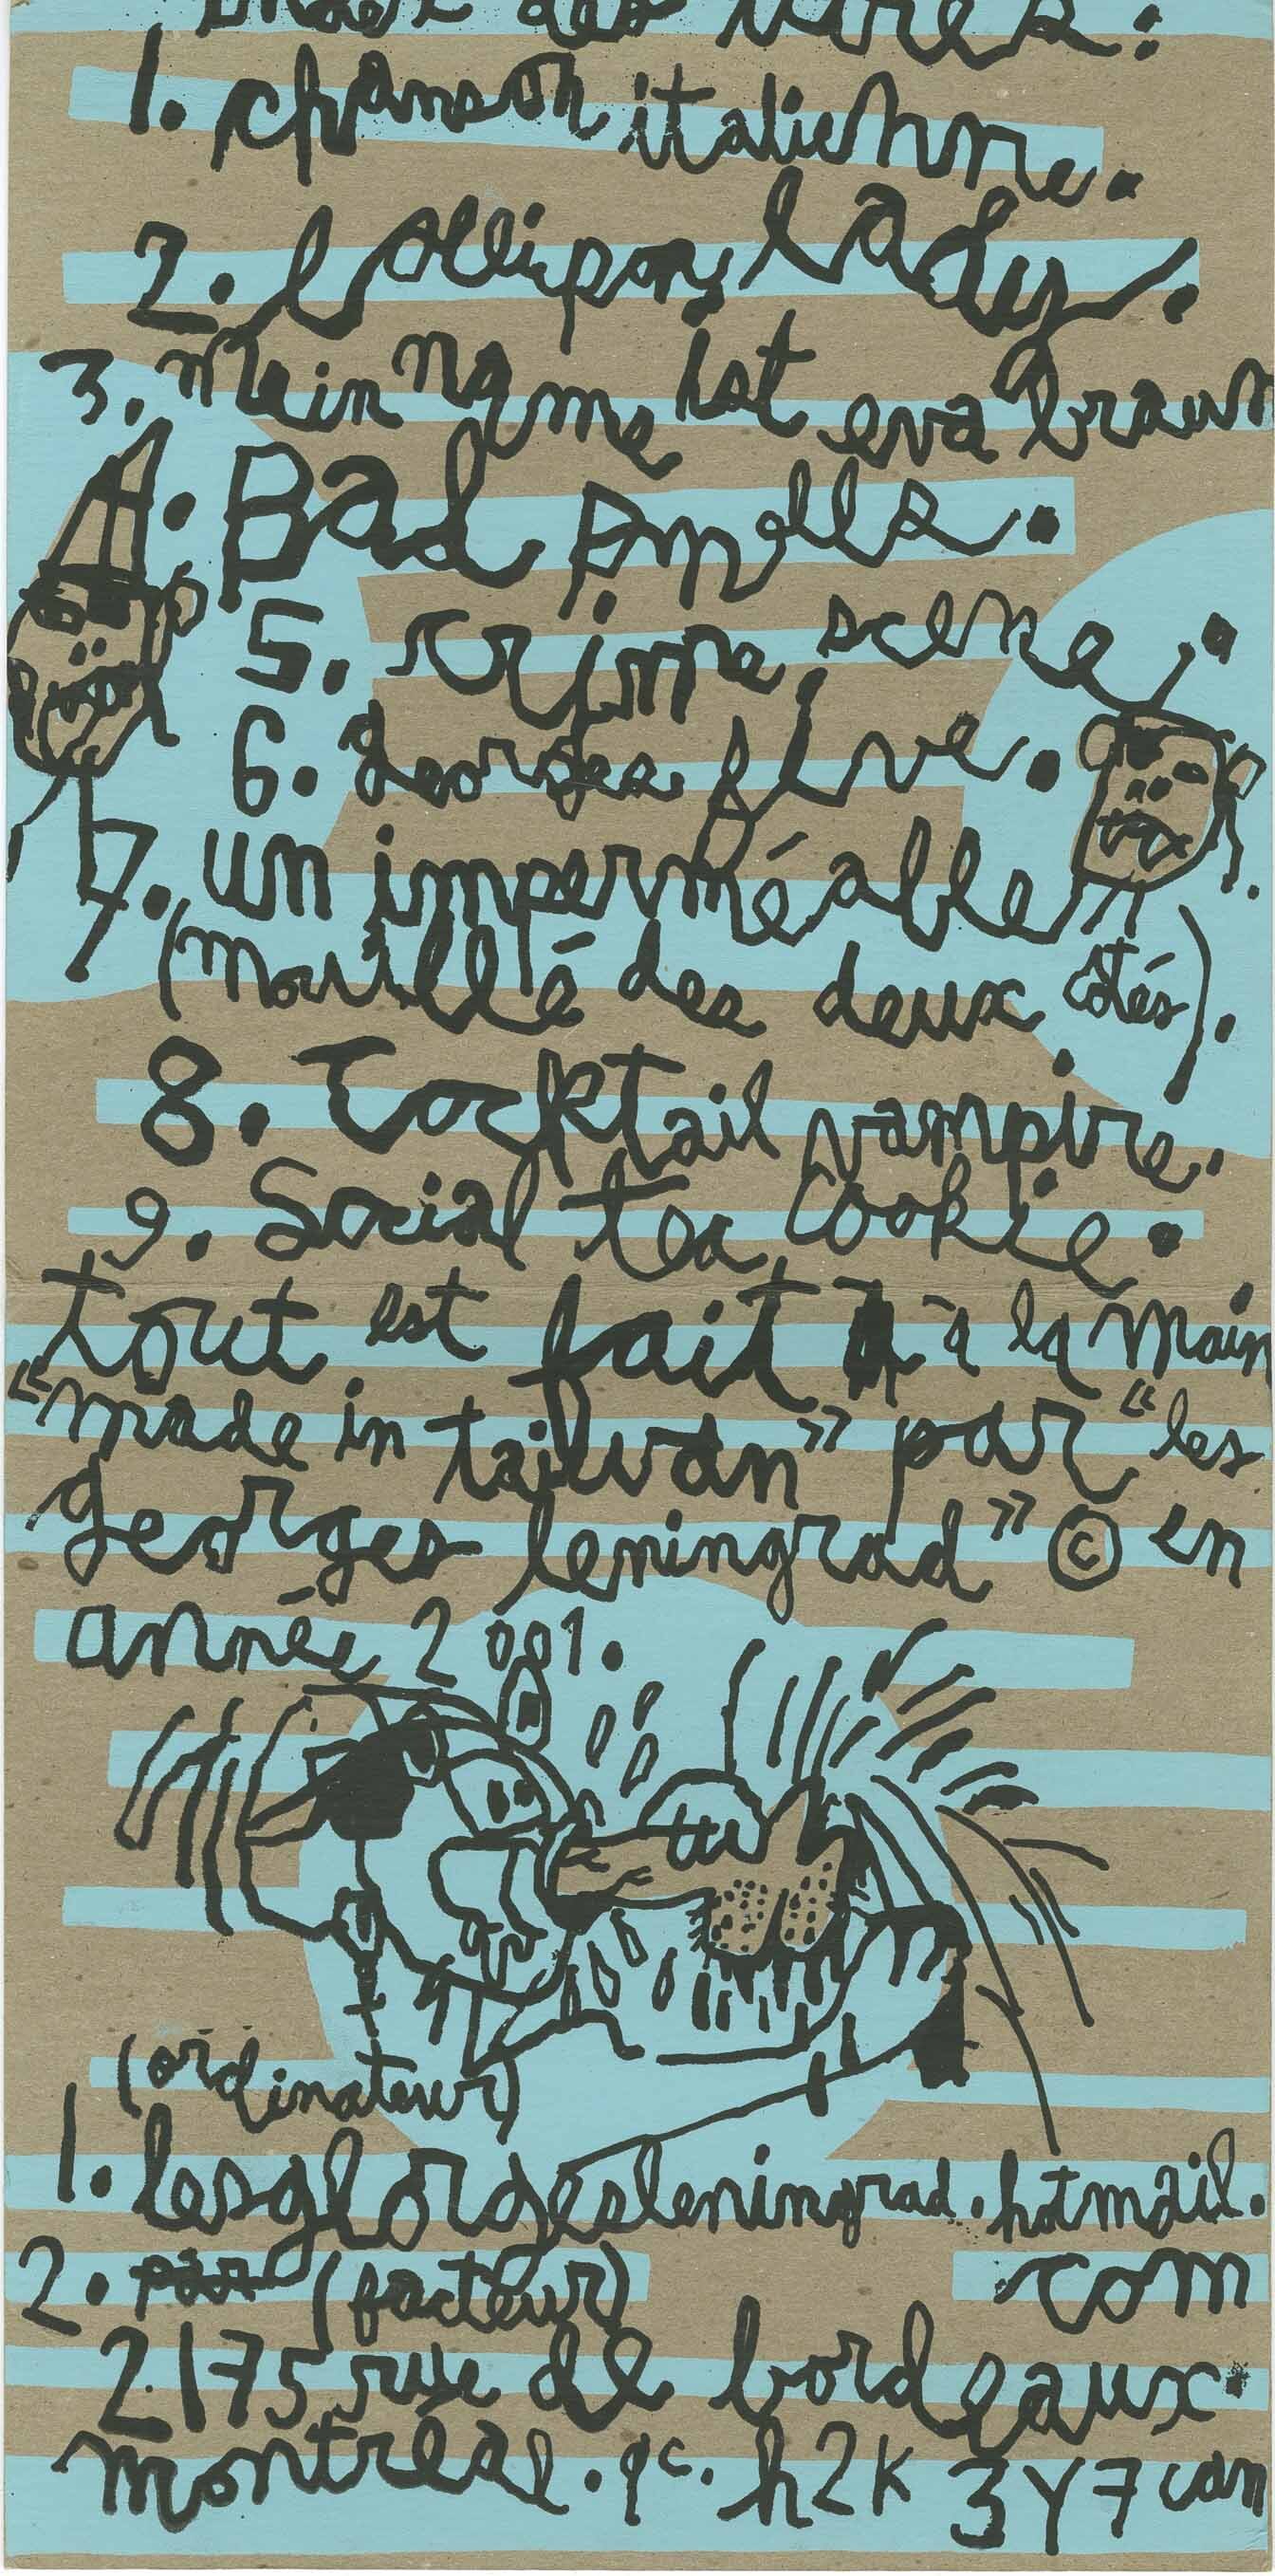 index des titres:
1. chanson italienne.
2. lollipop lady.
3. mein name ist eva braun
4. Bad smells.
5. crime scene.
6. georges five.
7. un imperméable
(mouillé des deux côtés).
8. Cocktail vampire.
9. Social tea cookie.
tout est fait à la main
"made in taiwan" par "les
georges leningrad" © en
année 2001.
(ordinateur)
1. lesgeorgesleningrad.hotmail.
com
2. (facteur)
2175 rue de bordeaux
montréal. qc. h2k 3Y7 can